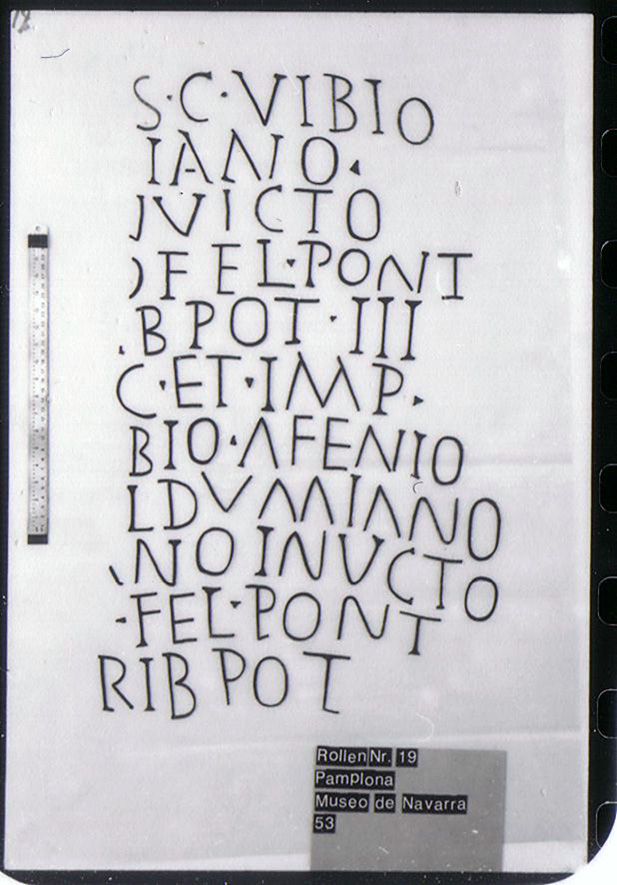 S·C·VIBIO
IANO·
IVICTO
)FEL·PONT
.BPOT·III
C·ET·IMP·
BIO·AFENIO
LDVMIANO
\NOINVCTO
·FEL·PONT
RIBPOT
Rollen Nr. 19
Pamplona
Museo de Navarra
53